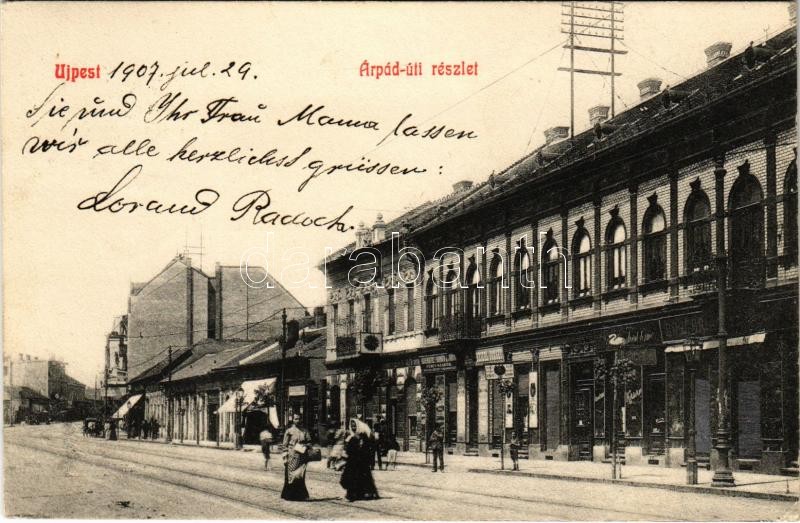 Ujpest 1907. jul. 29.
Árpád-úti részlet
Sie und Ihr Frau Mama lassen
wir alle herzlichst grüssen:
Lorand Radoch.
darabanth